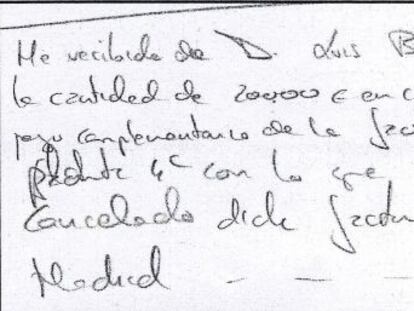 He recibido de D. Luis B
la cantidad de 20.000 € en c
pago complementario de la fac
planta 4ª con lo que
cancelado dicha factur
Madrid — — —